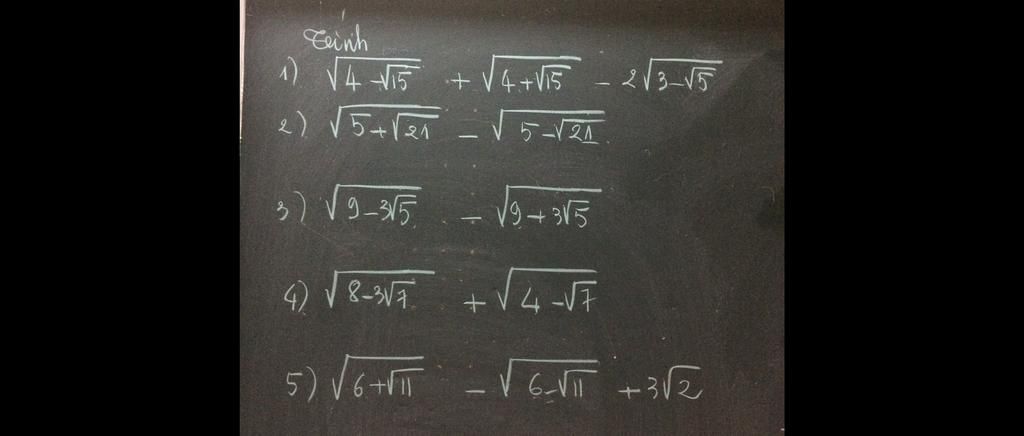 Tính
1) √(4-√15) + √(4+√15) - 2√(3-√5)
2) √(5+√21) - √(5-√21)
3) √(9-3√5) - √(9+3√5)
4) √(8-3√7) + √(4-√7)
5) √(6+√11) - √(6-√11) + 3√2